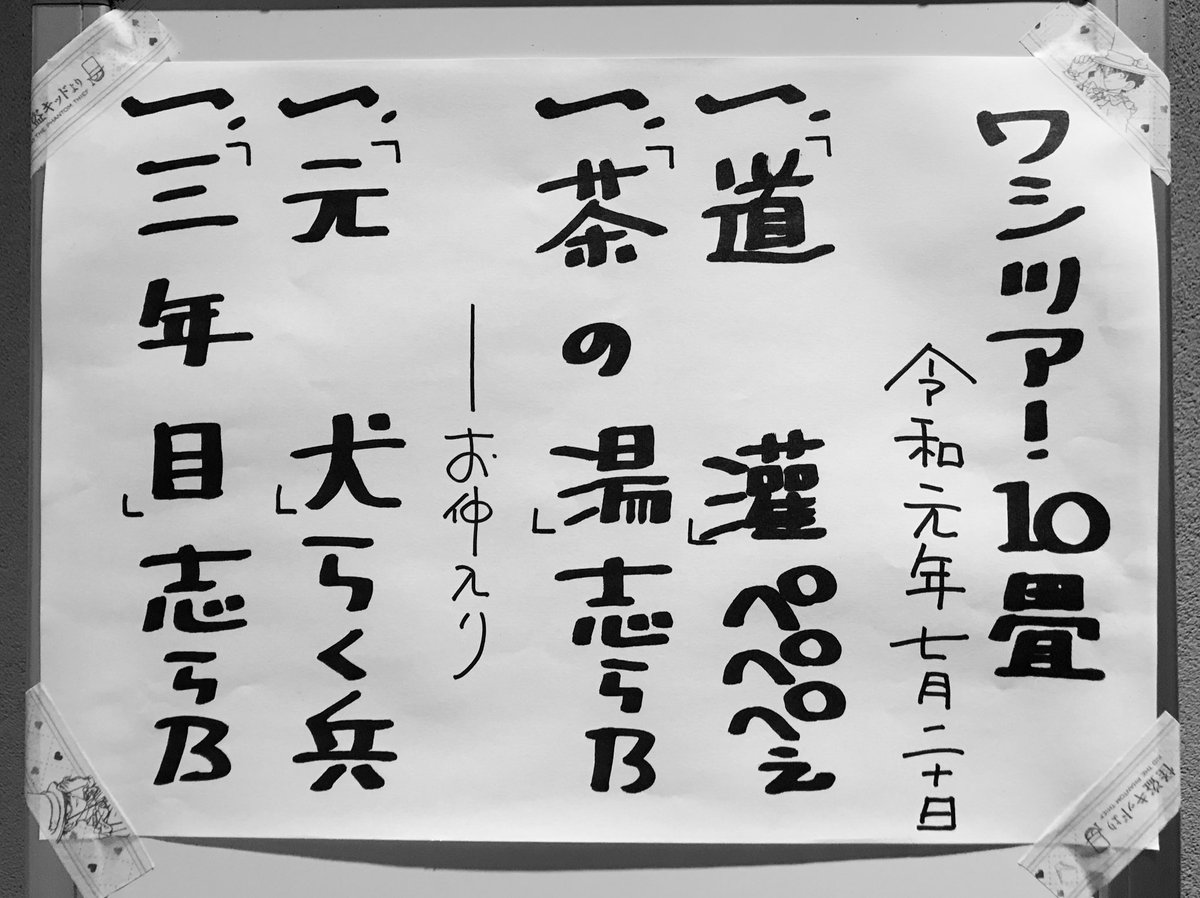 ワシツアー10畳
令和元年七月二十日
一、「道灌」ぺぺぺえ
一、「茶の湯」志らB
――お仲入り
一、「元犬」らく兵
一、「三年目」志らB
怪盗キッドより
KID THE PHANTOM THIEF